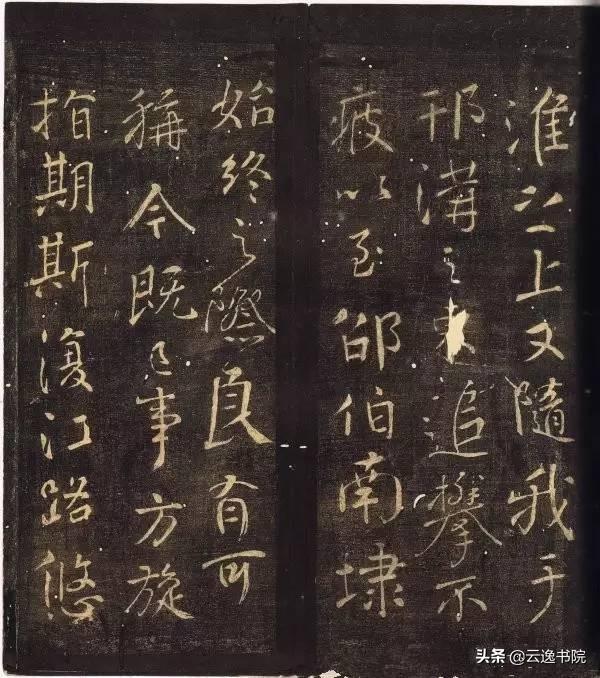 淮之上又隨我于
邗溝之東追攀不
疲以至邵伯南埭
始終之際良有可
稱今既已事方旋
指期斯復江路悠
头条 @云逸书院